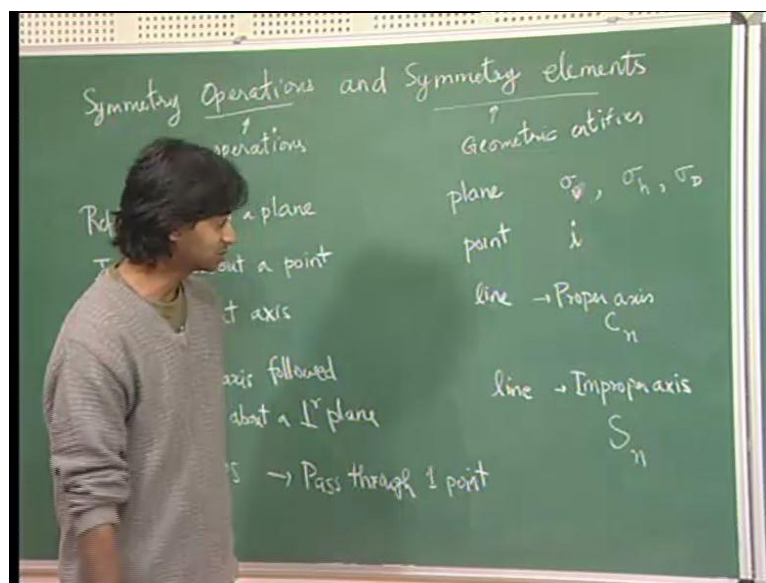 Symmetry Operations and Symmetry elements
operations Geometric entities
a plane plane σv, σh, σD
about a point point i
axis line → Proper axis
Cn
axis followed line → Improper axis
about a ⊥r plane Sn
→ Pass through 1 point